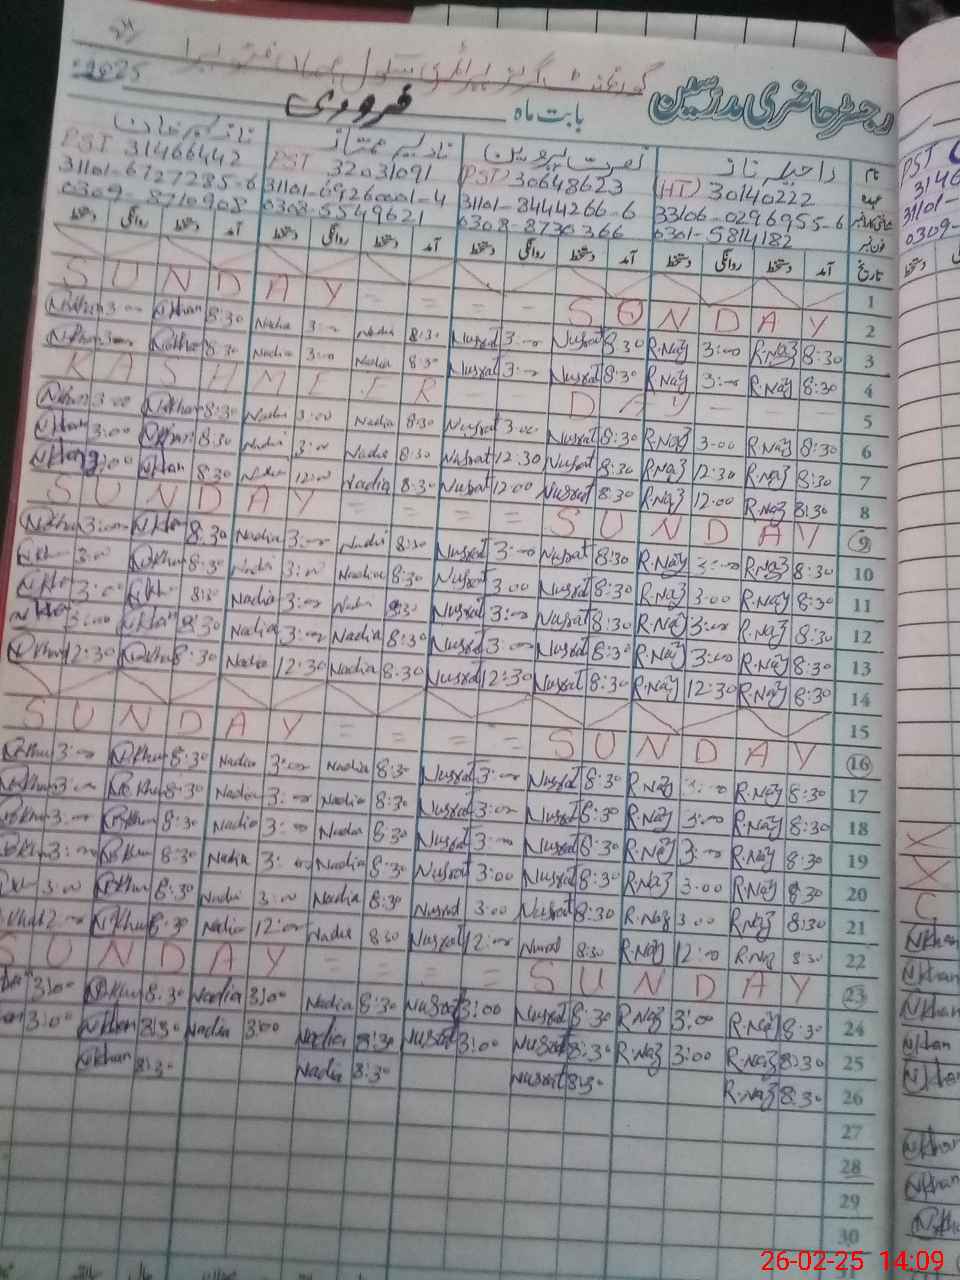 2025
رجسٹر حاضری مدرسین بابت ماہ فروری
راحیلہ ناز نصرت پروین نادیہ ممتاز
(HT) 30140222 (PST) 30648623 PST 32031091 PST 31466442
33106-0296955-6 31101-8444266-6 31101-6926001-4 31101-6727285-6
0301-5814182 0308-8730366 0303-5549621 0309-8710908
تاریخ آمد دستخط روانگی دستخط آمد دستخط روانگی دستخط آمد دستخط روانگی دستخط آمد دستخط روانگی دستخط
1
SUNDAY = = = - - SUNDAY 2
N.Khan 3:00 N.Khan 8:30 Nadia 3:00 Nadia 8:30 Nusrat 3:00 Nusrat 8:30 R.Naz 3:00 R.Naz 8:30 3
N.Khan 3:00 N.Khan 8:30 Nadia 3:00 Nadia 8:30 Nusrat 3:00 Nusrat 8:30 R.Naz 3:00 R.Naz 8:30 4
KASHMIER DAY 5
N.Khan 3:00 N.Khan 8:30 Nadia 3:00 Nadia 8:30 Nusrat 3:00 Nusrat 8:30 R.Naz 3:00 R.Naz 8:30 6
N.Khan 3:00 N.Khan 8:30 Nadia 3:00 Nadia 8:30 Nusrat 12:30 Nusrat 8:30 R.Naz 12:30 R.Naz 8:30 7
N.Khan N.Khan 8:30 Nadia 12:00 Nadia 8:30 Nusrat 12:00 Nusrat 8:30 R.Naz 12:00 R.Naz 8:30 8
SUNDAY = = = = SUNDAY 9
N.Khan 3:00 N.Khan 8:30 Nadia 3:00 Nadia 8:30 Nusrat 3:00 Nusrat 8:30 R.Naz 3:00 R.Naz 8:30 10
N.Khan 3:00 N.Khan 8:30 Nadia 3:00 Nadia 8:30 Nusrat 3:00 Nusrat 8:30 R.Naz 3:00 R.Naz 8:30 11
N.Khan 3:00 N.Khan 8:30 Nadia 3:00 Nadia 8:30 Nusrat 3:00 Nusrat 8:30 R.Naz 3:00 R.Naz 8:30 12
N.Khan 3:00 N.Khan 8:30 Nadia 3:00 Nadia 8:30 Nusrat 3:00 Nusrat 8:30 R.Naz 3:00 R.Naz 8:30 13
N.Khan 12:30 N.Khan 8:30 Nadia 12:30 Nadia 8:30 Nusrat 12:30 Nusrat 8:30 R.Naz 12:30 R.Naz 8:30 14
15
SUNDAY = = = = SUNDAY 16
N.Khan 3:00 N.Khan 8:30 Nadia 3:00 Nadia 8:30 Nusrat 3:00 Nusrat 8:30 R.Naz 3:00 R.Naz 8:30 17
N.Khan 3:00 N.Khan 8:30 Nadia 3:00 Nadia 8:30 Nusrat 3:00 Nusrat 8:30 R.Naz 3:00 R.Naz 8:30 18
N.Khan 3:00 N.Khan 8:30 Nadia 3:00 Nadia 8:30 Nusrat 3:00 Nusrat 8:30 R.Naz 3:00 R.Naz 8:30 19
N.Khan 3:00 N.Khan 8:30 Nadia 3:00 Nadia 8:30 Nusrat 3:00 Nusrat 8:30 R.Naz 3:00 R.Naz 8:30 20
3:00 N.Khan 8:30 Nadia 3:00 Nadia 8:30 Nusrat 3:00 Nusrat 8:30 R.Naz 3:00 R.Naz 8:30 21
N.Khan 8:30 Nadia 12:00 Nadia 8:30 Nusrat 12:00 Nusrat 8:30 R.Naz 12:00 R.Naz 8:30 22
SUNDAY = = = = SUNDAY 23
3:00 N.Khan 8:30 Nadia 3:00 Nadia 8:30 Nusrat 3:00 Nusrat 8:30 R.Naz 3:00 R.Naz 8:30 24
3:00 N.Khan 8:30 Nadia 3:00 Nadia 8:30 Nusrat 3:00 Nusrat 8:30 R.Naz 3:00 R.Naz 8:30 25
N.Khan 8:30 Nadia 8:30 Nusrat 8:30 R.Naz 8:30 26
27
28
29
30
26-02-25 14:09